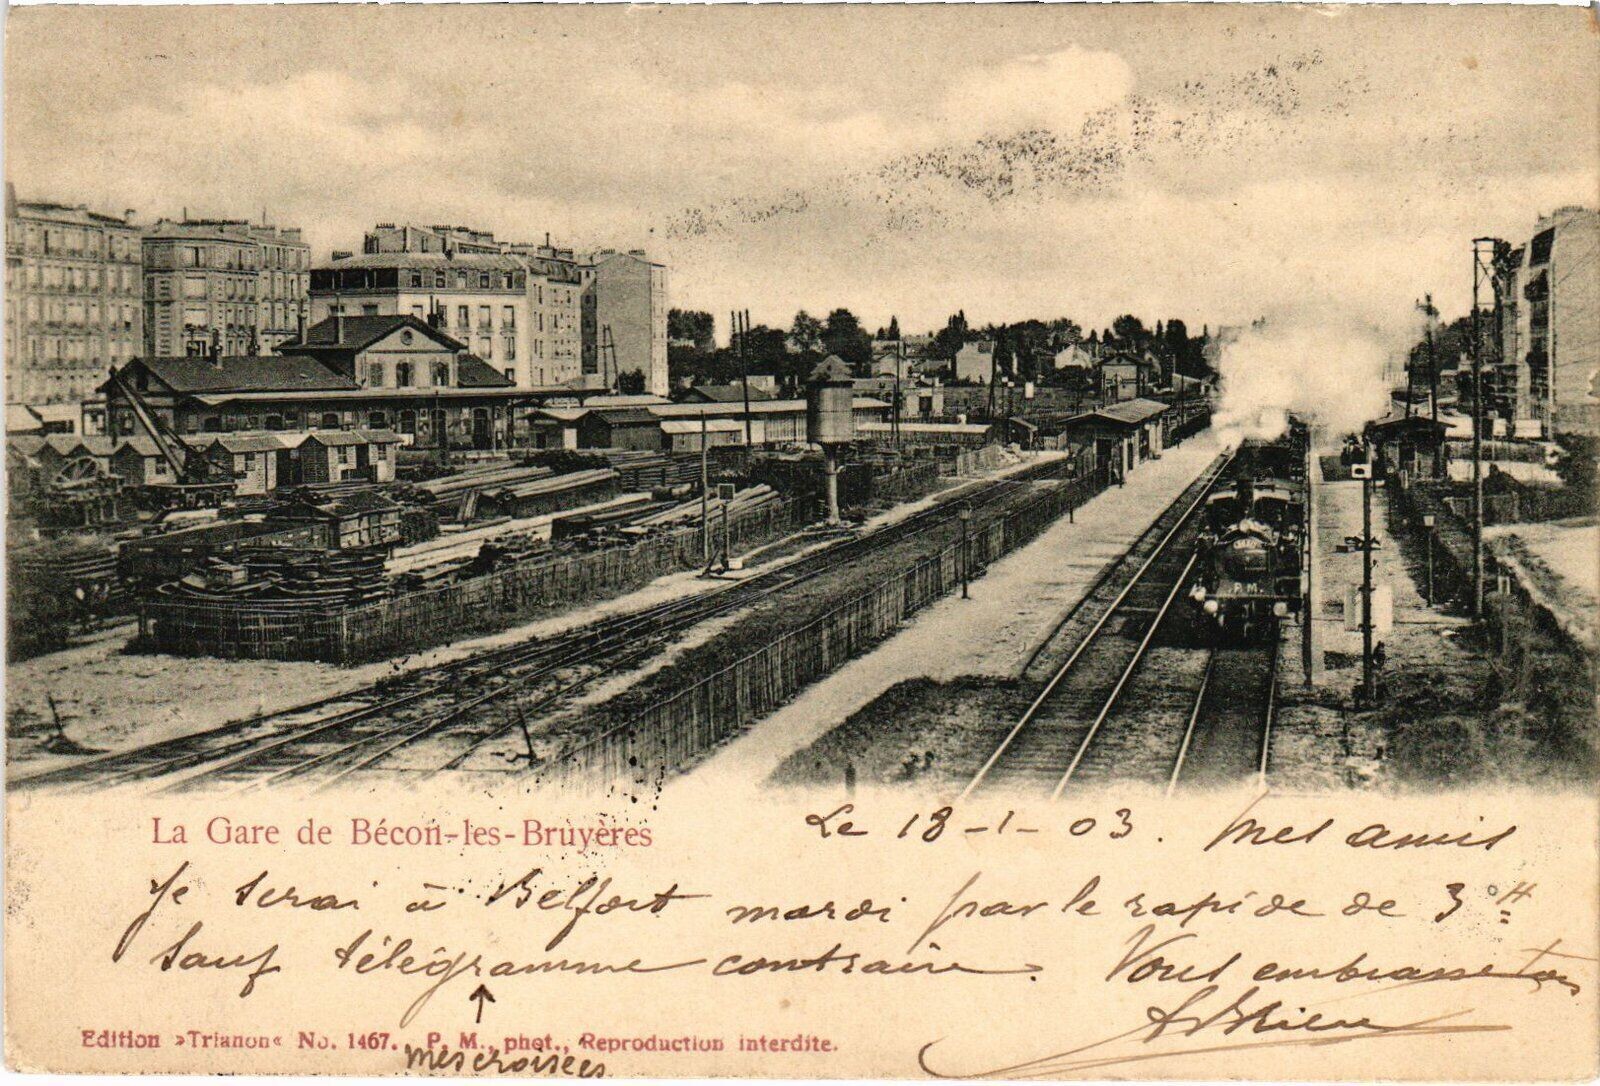 P.M.
La Gare de Bécon-les-Bruyères
Le 18-1-03. Mes amis
Je serai à Belfort mardi par le rapide de 3 H
sauf télégramme contraire. Vous embrasse tous
Edition »Trianon« No. 1467. P. M., phot., Reproduction interdite.
mes croisées